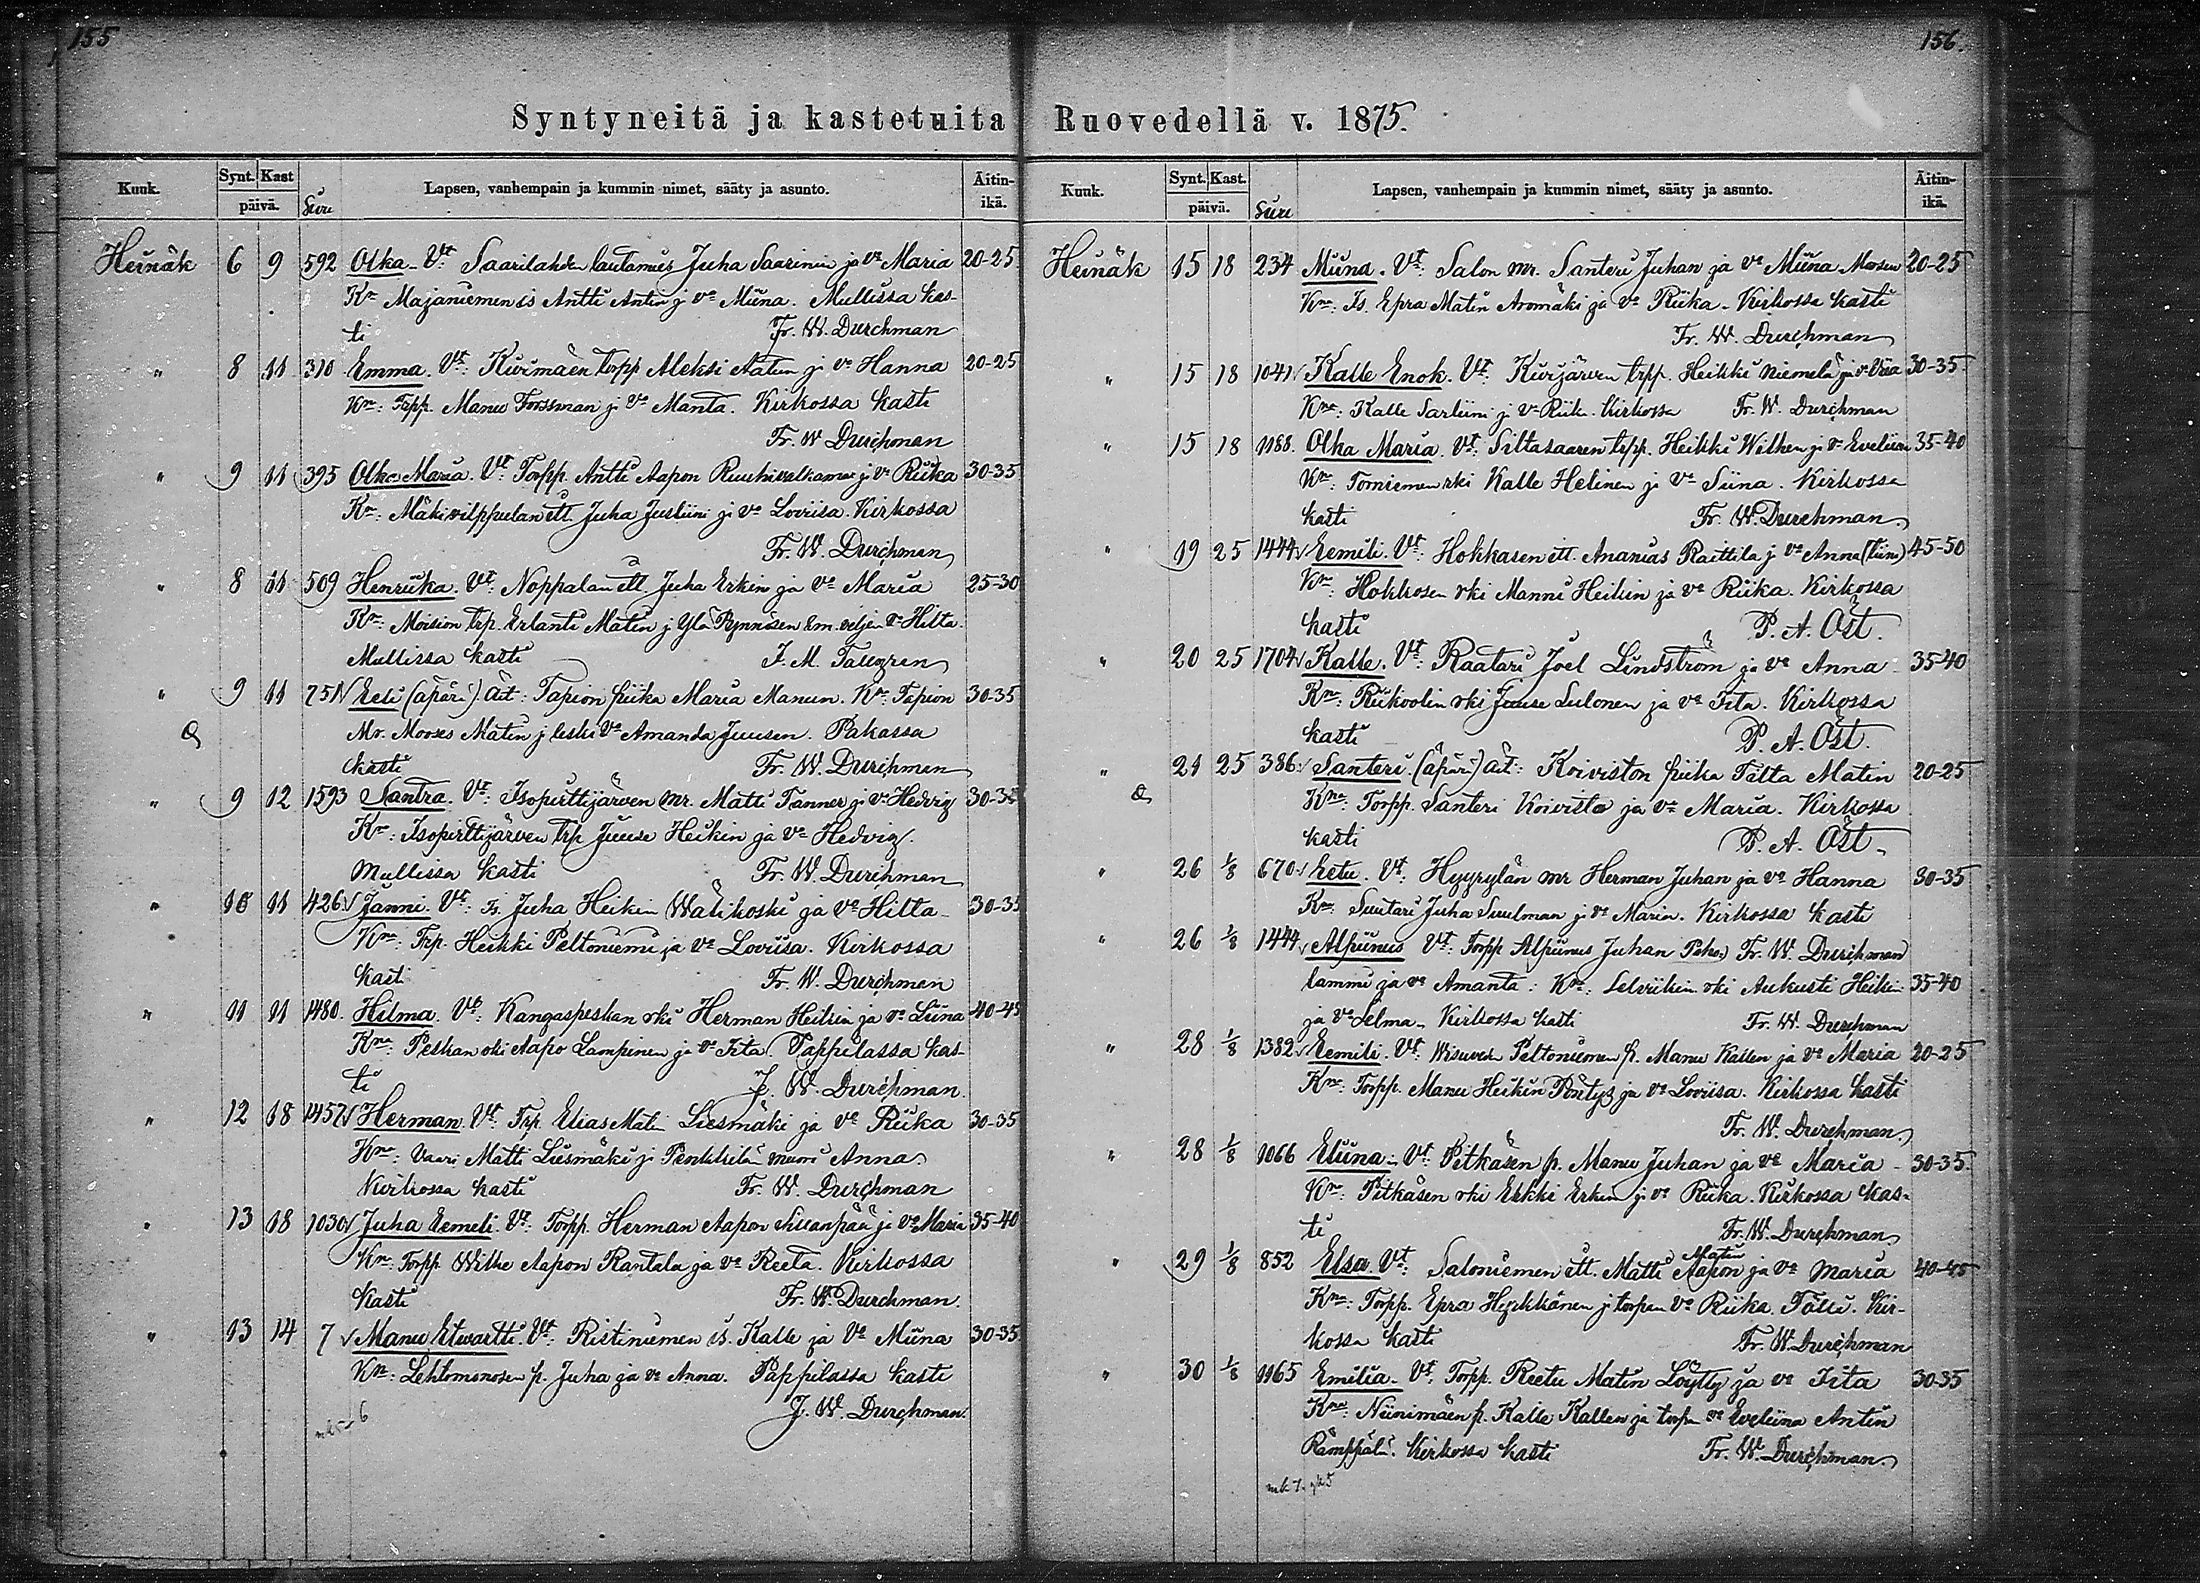 155
Syntyneitä ja kastetuita
Kuuk. Synt. Kast päivä. Siru Lapsen, vanhempain ja kummin nimet, sääty ja asunto. Äitin-ikä.
Heinäk 6 9 592 Olka. Vt: Saarilahden lautamies Juha Saarinen ja vo Maria 20-25
Kn Majaniemen is Antti Antin j vo Miina. Mullissa kas-
ti Fr. W. Durchman
" 8 11 310 Emma. Vt: Torpp Aleksi Matin j vo Hanna 20-25
Kn: Trpp. Manu Forssman j vo Manta. Kirkossa kasti
Fr. W Durchman
" 9 11 395 Olka Maria. Vt: Torpp. Antti Aapon j vo Riika 30-35
Kn: Mäkivilppulan itt. Juha Justiini j vo Loviisa. Kirkossa
Fr. W. Durchman
" 8 11 509 Henriika. Vt: Noppalan itt. Juha Erkin ja vo Maria 25-30
Kn: Moision trp. Erlanti Matin j Ylä Pynnösen Em. veljen vo Hilta.
Mullissa kasti J. M. Tallgren
" 9 11 751 Eeli (äpärä) Äit: Tapion piika Maria Manun. Kn: Tapion 30-35
Mr. Mooses Matin j leski vo Amanda Juusen. Pakassa
kasti Fr. W. Durchman
" 9 12 1593 Santra. Vt: Isopirttijärven Mr. Matti Tanner j vo Hedvig 30-35
Kn: Isopirttijärven trp Juuse Heikin ja vo Hedvig.
Mullissa kasti Fr. W. Durchman
" 10 11 426 Janni. Vt: Is. Juha Heikin Wäikoski ja vo Hilta 30-35
Kn: Trp. Heikki Peltoniemi ja vo Loviisa. Kirkossa
kasti Fr. W. Durchman
" 11 11 1480. Hilma. Vt: Kangaspeskan rki Herman Heikin ja vo Liina 40-45
Kn: Peskan rki Aapo Lampinen ja vo Iita. Pappilassa kas-
ti J. W. Durchman.
" 12 18 1457 Herman. Vt: Trp. Elias Matin Liesmäki ja vo Riika 30-35
Kn: Vaari Matti Liesmäki j muori Anna.
Kirkossa kasti Fr. W. Durchman
" 13 18 1030 Juha Eemeli. Vt: Torpp. Herman Aapon j vo Maria 35-40
Kn: Torpp. Wilhe Aapon Rantala ja vo Reeta. Kirkossa
kasti Fr. W. Durchman.
" 13 14 7 Manu Etvartti. Vt: Ristiniemen is. Kalle ja vo Miina 30-35
Kn: Lehtomonosen p. Juha ja vo Anna. Pappilassa kasti
J. W. Durchman.
156.
Ruovedellä v. 1875.
Kuuk. Synt. Kast. päivä. Siru Lapsen, vanhempain ja kummin nimet, sääty ja asunto. Äitin-ikä.
Heinäk 15 18 234 Miina. Vt: Salon mr. Santeri Juhan ja vo Miina 20-25
Kn: Is. Epra Matin Aromäki ja vo Riika. Kirkossa kasti
Fr. W. Durchman
" 15 18 1041 Kalle Enok. Vt: Kuijärven trpp. Heikki Niemelä ja vo 30-35
Kn: Kalle Sarliini j vo Riik. Kirkossa Fr. W. Durchman
" 15 18 1188. Olka Maria. Vt: Siltasaaren trpp. Heikki Wilhen j vo Eveliina 35-40
Kn: Torniemen rki Kalle Helinen j vo Siina. Kirkossa
kasti Fr. W. Durchman.
" 19 25 1444 Eemili. Vt: Hokkasen itt. Ananias Raittila j vo Anna (Liina) 45-50
Kn: Hokkosen rki Manni Heikin ja vo Riika. Kirkossa
kasti P. A. Öst.
" 20 25 1704 Kalle. Vt: Raatari Joel Lindström ja vo Anna 35-40
Kn: Riikoolin rki Juuse Lulonen ja vo Iita. Kirkossa
kasti P. A. Öst.
" 21 25 386 Santeri. (äpärä) Äit: Koiviston piika Tilta Matin 20-25
Kn: Torpp. Santeri Koivisto ja vo Maria. Kirkossa
kasti P. A. Öst.
" 26 1/8 670 Eetu. Vt: Hyyrylän mr Herman Juhan ja vo Hanna 30-35
Kn: Suutari Juha Suulman j vo Maria. Kirkossa kasti
" 26 1/8 1444 Alpiinus Vt: Torpp Alpiinus Juhan Fr. W. Durchman
lammi ja vo Amanta: Kn: Selvikin rki Aukusti Heikin 35-40
ja vo Selma. Kirkossa kasti Fr. W. Durchman
" 28 1/8 1382 Eemili. Vt: Wisuveden Peltoniemen p. Manu Kallen ja vo Maria 20-25
Kn: Torpp. Manu Heikin Pöntys ja vo Loviisa. Kirkossa kasti
Fr. W. Durchman.
" 28 1/8 1066 Eliina. Vt: Pitkäsen p. Manu Juhan ja vo Maria 30-35
Kn: Pitkäsen rki Erkki Erkin j vo Riika. Kirkossa kas-
ti Fr. W. Durchman
" 29 1/8 852 Elsa. Vt: Saloniemen itt. Matti Matin Aapon ja vo Maria 40-45
Kn: Torpp. Epra Hyrkkänen j torpan vo Riika. Kir-
kossa kasti Fr. W. Durchman
" 30 1/8 1165 Emilia. Vt: Torpp. Reetu Matin Löytty ja vo Iita 30-35
Kn: Niinimäen p. Kalle Kallen ja torpn vo Eveliina Antin
Rämppäli. Kirkossa kasti Fr. W. Durchman.
mk 7. 5